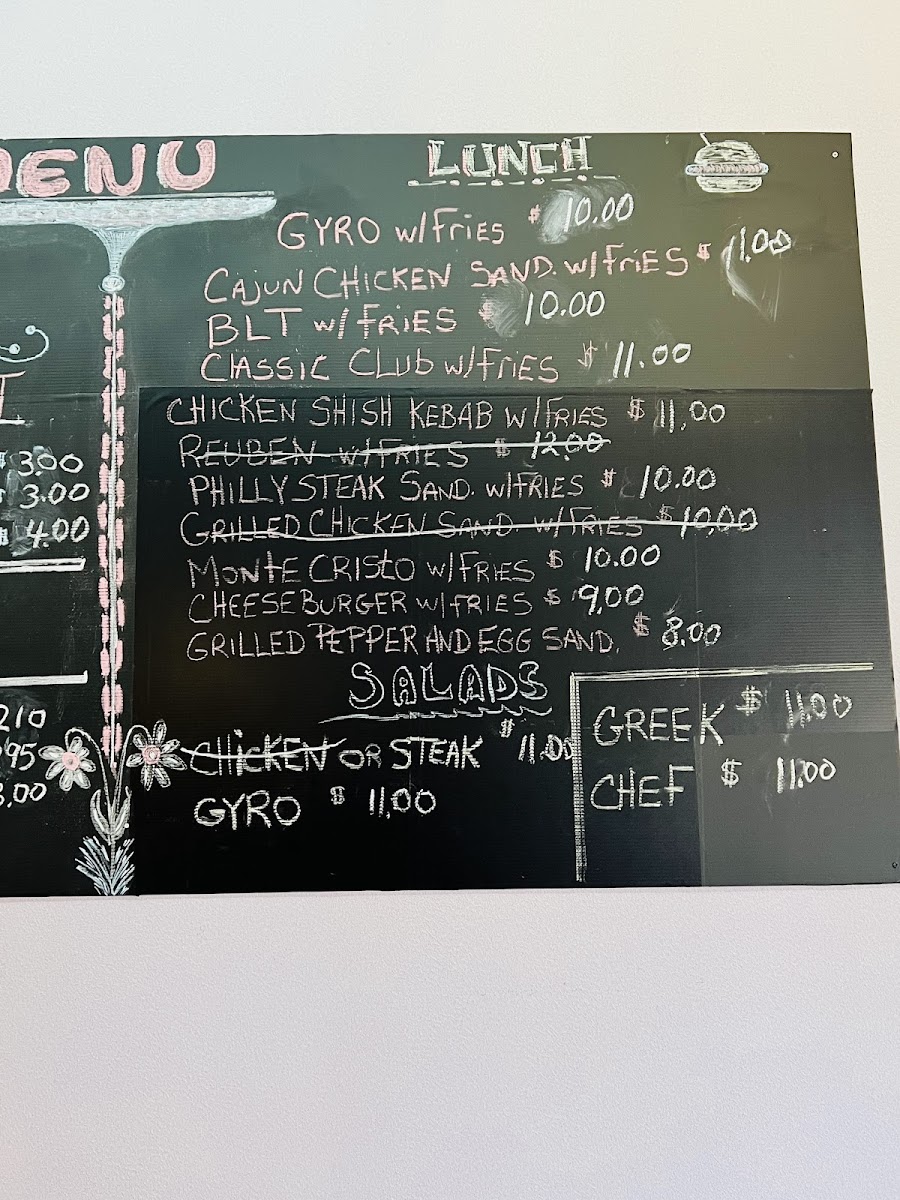 MENU
LUNCH
GYRO W/Fries $ 10.00
CAJUN CHICKEN SAND. W/FRiES $ 11.00
BLT W/ FRIES $ 10.00
CLASSIC CLUB W/FRIES $ 11.00
CHICKEN SHISH KEBAB W/FRIES $ 11.00
REUBEN W/FRIES $ 12.00
PHILLY STEAK SAND. W/FRIES $ 10.00
GRILLED CHICKEN SAND W/FRIES $ 10.00
MONTE CRISTO W/FRIES $ 10.00
CHEESEBURGER W/FRIES $ 9.00
GRILLED PEPPER AND EGG SAND. $ 8.00
SALADS
CHICKEN OR STEAK $ 11.00
GYRO $ 11.00
GREEK $ 11.00
CHEF $ 11.00
$ 3.00
3.00
4.00
210
95
.00